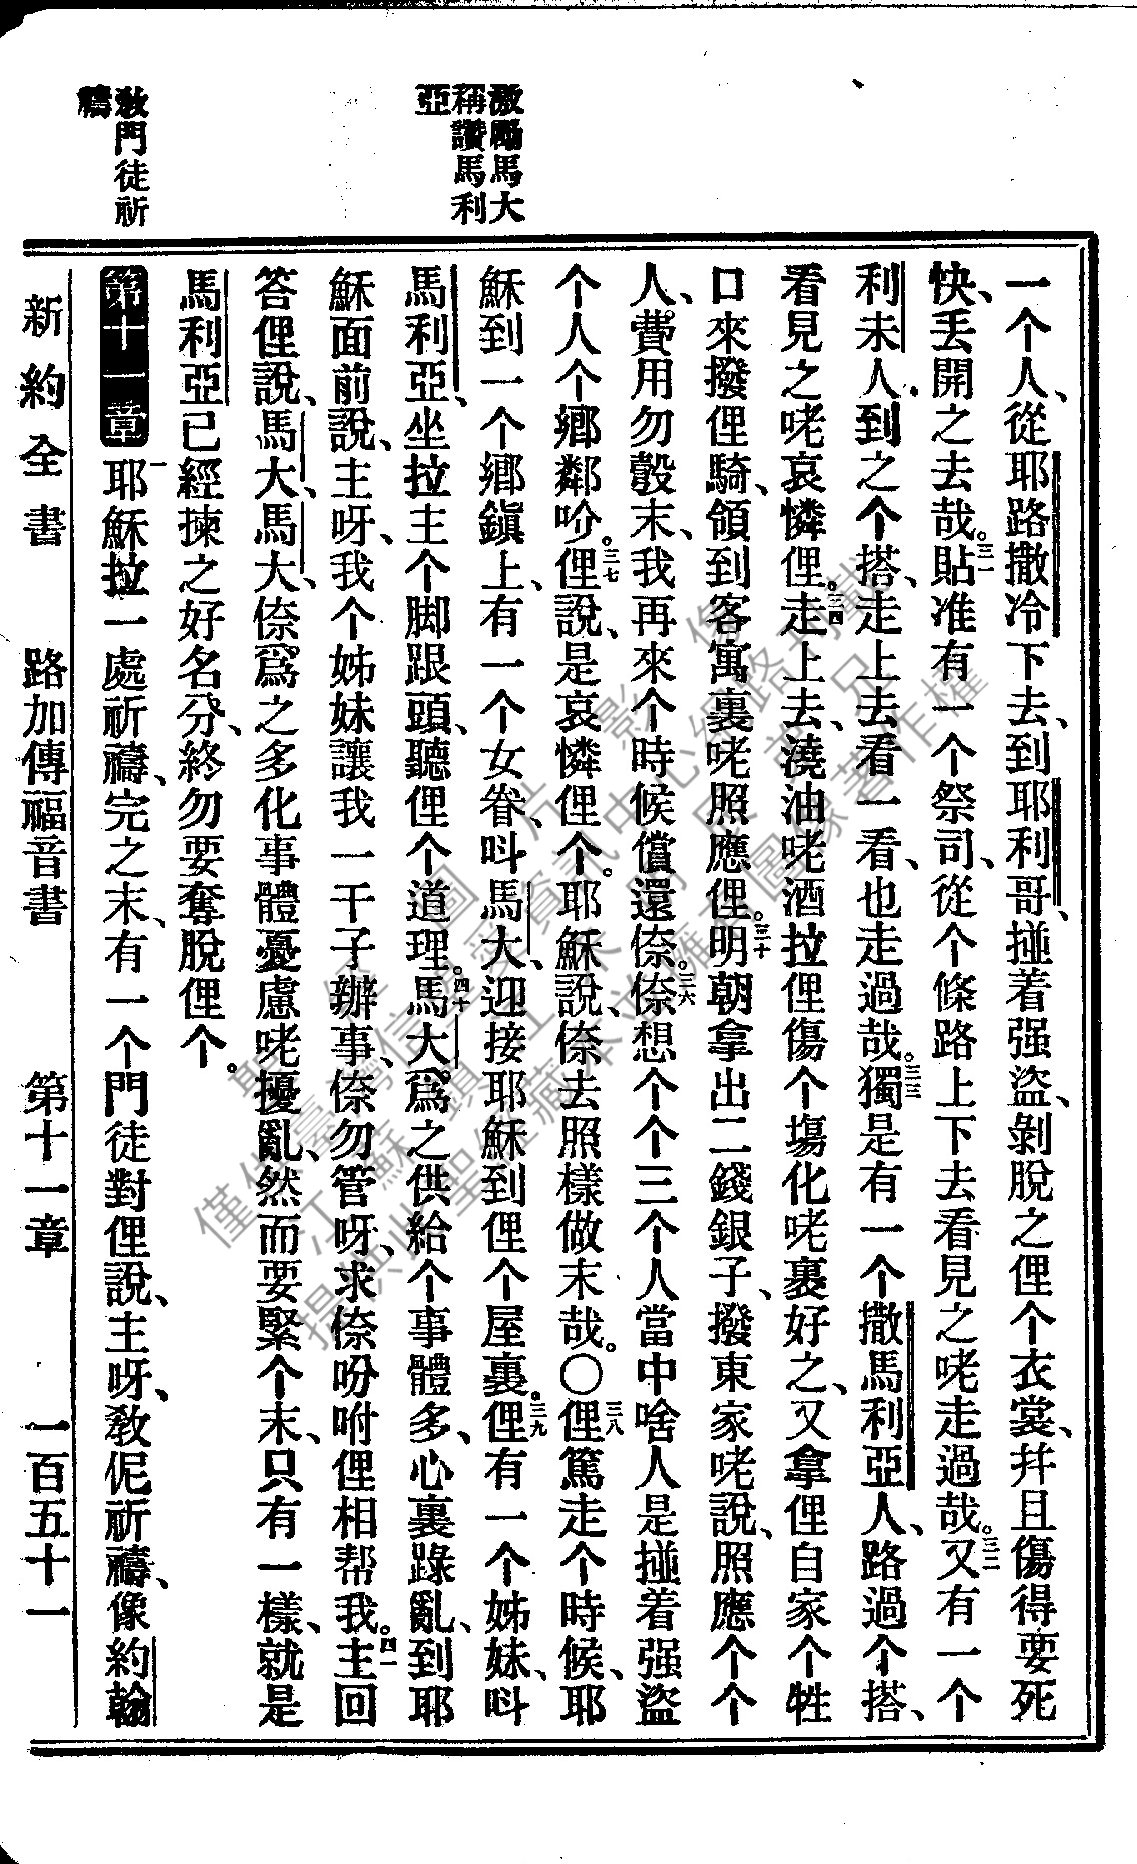 激勵馬大
稱讚馬利
亞
敎門徒祈
禱
一个人、從耶路撒冷下去、到耶利哥、掽着强盜、剝脫之俚个衣裳、幷且傷得要死
快、丢開之去哉。三一貼准有一个祭司、從个條路上下去看見之咾走過哉。三二又有一个
利未人、到之个搭、走上去看一看、也走過哉。三三獨是有一个撒馬利亞人、路過个搭、
看見之咾哀憐俚。三四走上去、澆油咾酒拉俚傷个塲化咾裹好之、又拿俚自家个牲
口來撥俚騎、領到客寓裏咾照應俚。三十明朝拿出二錢銀子、撥東家咾說、照應个个
人、費用勿彀末、我再來个時候償還倷。三六倷想个个三个人當中啥人是掽着强盜
个人个鄉鄰吤。三七俚說、是哀憐俚个。耶穌說、倷去照樣做末哉。〇三八俚篤走个時候、耶
穌到一个鄉鎭上、有一个女眷、呌馬大、迎接耶穌到俚个屋裏。三九俚有一个姊妹、呌
馬利亞、坐拉主个脚跟頭、聽俚个道理。四十馬大爲之供給个事體多、心裏踛亂、到耶
穌面前說、主呀、我个姊妹讓我一干子辦事、倷勿管呀、求倷吩咐俚相帮我。四一主回
答俚說、馬大、馬大、倷爲之多化事體憂慮咾擾亂、然而要緊个末、只有一樣、就是
馬利亞已經揀之好名分、終勿要奪脫俚个。
第十一章 一耶穌拉一處祈禱、完之末、有一个門徒對俚說、主呀、敎伲祈禱、像約翰
新約全書 路加傳福音書 第十一章 一百五十一